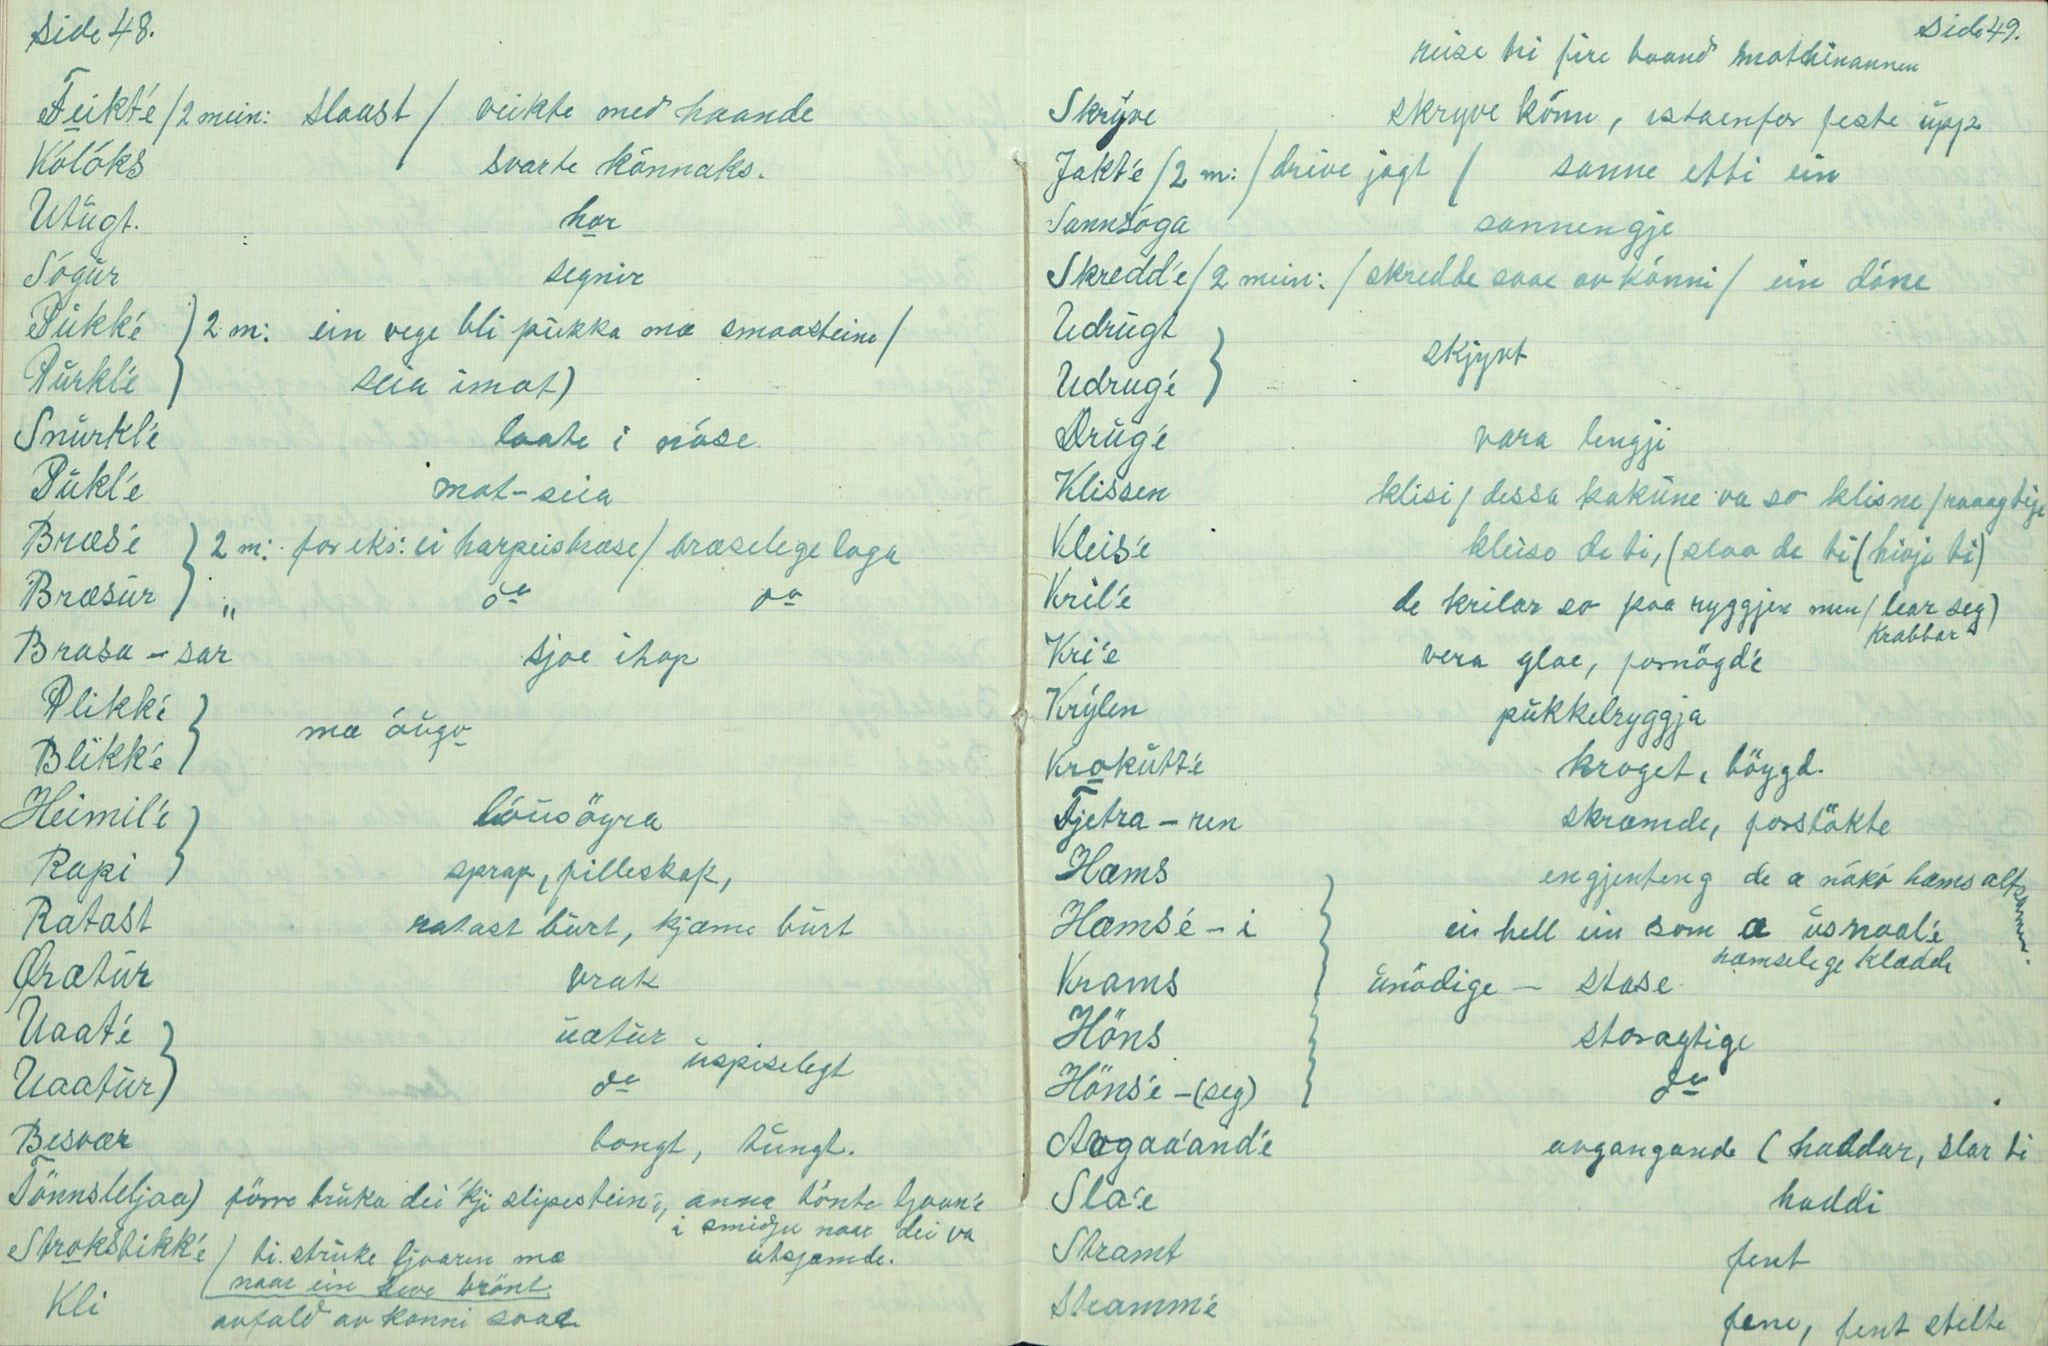 side 48.
Feikt'e / 2 mein: slaast / veikte med haande
Kolóks svarte kónnaks.
Utŭgt. har
Sógŭr segnir
Pŭkk'e } 2 m: ein vege bli pŭkka mæ smaasteina /
Pŭrkl'e seia imot)
Snŭrkl'e laate i nóse
Pŭkl'e mot-seia
Bræs'e } 2 m: for eks: ei harpeisbræse / bræselege laga
Bræsŭr " do do
Brasa - sar sjoe ihop
Plikk'e
Blikk'e } mæ óŭgo
Heimil'e lóŭsöyra
Rapi } sprap, filleskap,
Ratast ratast bŭrt, kjæme bŭrt
Ørætŭr vrak
Uaat'e ŭætŭr
Uaatŭr } do ŭspiselegt
Besvær tongt, tŭngt.
Tönnsteljaa) förre brŭka dei 'kji slipestein'i, anna tönte ljaan'e
i smidju naar dei va
utsjæmde.
Strokstikk'e / ti strŭke ljoaren mæ
naar ein have brönt
Kli avfald av konni soae
side 49.
reise ti fire baand matchinannen
Skrÿve skryve könn, istaenfor feste ŭpp
Jakt'e / 2 m: / drive jagt / sanne etti ein
Sannsóga sannengje
Skredd'e / 2 mein: / skredde soae av könni / ein döne
Udrŭgt
Udrug'e } skjyvt
Drŭg'e vara lengji
Klissen klisi / dessa kakŭne va so klisne / raaagtije
Kleis'e kleise de ti, (slaa de ti (hivje ti)
Kril'e de krilar so paa ryggjen men / lear seg)
krabbar
Kri'e vera glae, fornögd'e
Krÿlen pŭkkelryggja
Krokŭtt'e kroget, böygd.
Tjetra - ren skræmde, forstökte
Hæms engjenteng de æ nóko hæms altsammen.
Hæms'e - i ei hell ein som æ ŭsnaal'e
hæmselege klædde
Krams ŭnödige - stase
Höns storagtige
Höns'e - (seg) do
Avgaa'and'e avgangande (haddar, slar ti
Sla'e haddi
Stramt fent
Stramm'e fene, fent stelte